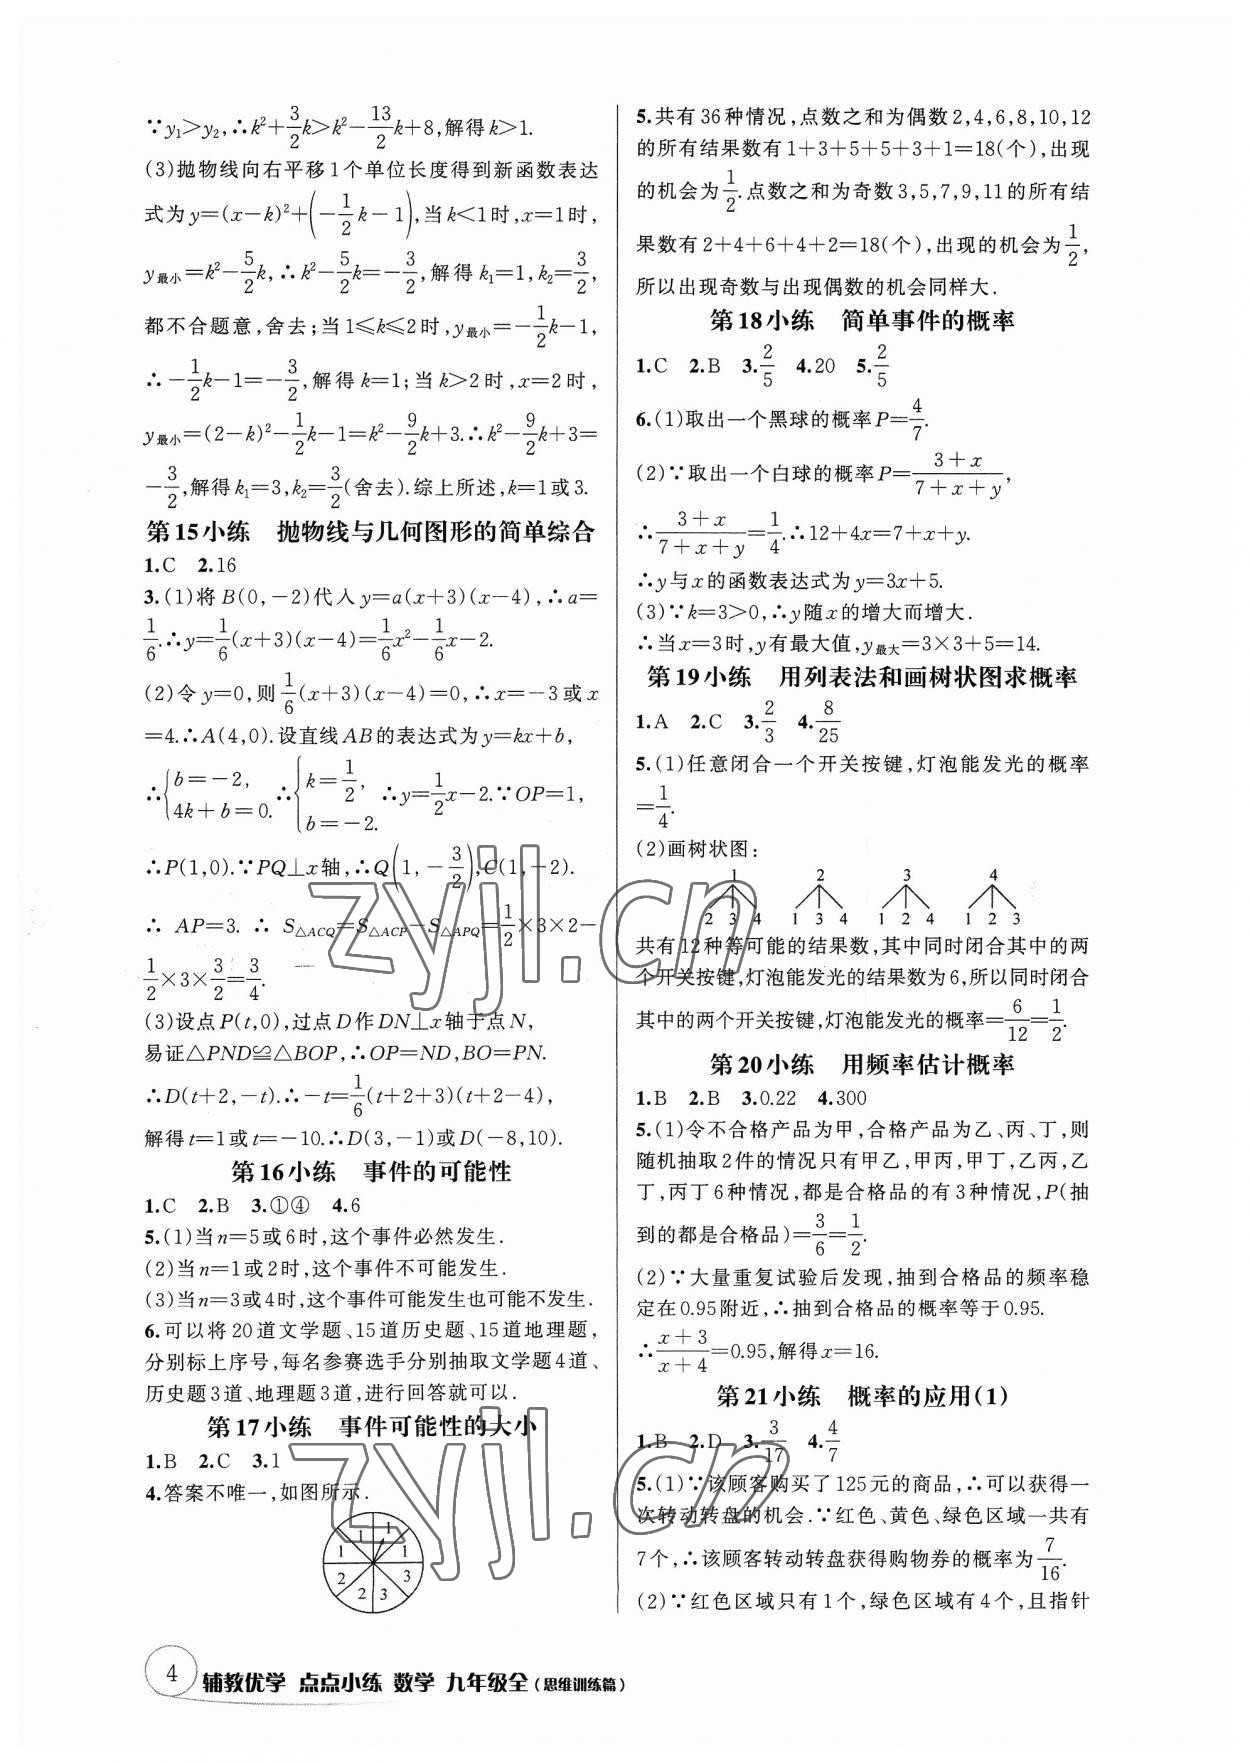 ∵y₁>y₂,∴k²+3/2k>k²-13/2k+8,解得k>1.
(3)抛物线向右平移1个单位长度得到新函数表达
式为y=(x-k)²+(-1/2k-1),当k<1时,x=1时,
y最小=k²-5/2k,∴k²-5/2k=-3/2,解得k₁=1,k₂=3/2,
都不合题意,舍去;当1≤k≤2时,y最小=-1/2k-1,
∴-1/2k-1=-3/2,解得k=1;当k>2时,x=2时,
y最小=(2-k)²-1/2k-1=k²-9/2k+3.∴k²-9/2k+3=
-3/2,解得k₁=3,k₂=3/2(舍去).综上所述,k=1或3.
第15小练 抛物线与几何图形的简单综合
1.C 2.16
3.(1)将B(0,-2)代入y=a(x+3)(x-4),∴a=
1/6.∴y=1/6(x+3)(x-4)=1/6x²-1/6x-2.
(2)令y=0,则1/6(x+3)(x-4)=0,∴x=-3或x
=4.∴A(4,0).设直线AB的表达式为y=kx+b,
∴{b=-2, 4k+b=0. ∴{k=1/2, b=-2. ∴y=1/2x-2.∵OP=1,
∴P(1,0).∵PQ⊥x轴,∴Q(1,-3/2),C(1,-2).
∴AP=3.∴S△ACQ=S△ACP-S△APQ=1/2×3×2-
1/2×3×3/2=3/4.
(3)设点P(t,0),过点D作DN⊥x轴于点N,
易证△PND≌△BOP,∴OP=ND,BO=PN.
∴D(t+2,-t).∴-t=1/6(t+2+3)(t+2-4),
解得t=1或t=-10.∴D(3,-1)或D(-8,10).
第16小练 事件的可能性
1.C 2.B 3.①④ 4.6
5.(1)当n=5或6时,这个事件必然发生.
(2)当n=1或2时,这个事件不可能发生.
(3)当n=3或4时,这个事件可能发生也可能不发生.
6.可以将20道文学题、15道历史题、15道地理题,
分别标上序号,每名参赛选手分别抽取文学题4道、
历史题3道、地理题3道,进行回答就可以.
第17小练 事件可能性的大小
1.B 2.C 3.1
4.答案不唯一,如图所示.
1 1
1 1
2 3
2 3
5.共有36种情况,点数之和为偶数2,4,6,8,10,12
的所有结果数有1+3+5+5+3+1=18(个),出现
的机会为1/2.点数之和为奇数3,5,7,9,11的所有结
果数有2+4+6+4+2=18(个),出现的机会为1/2,
所以出现奇数与出现偶数的机会同样大.
第18小练 简单事件的概率
1.C 2.B 3.2/5 4.20 5.2/5
6.(1)取出一个黑球的概率P=4/7.
(2)∵取出一个白球的概率P=(3+x)/(7+x+y),
∴(3+x)/(7+x+y)=1/4.∴12+4x=7+x+y.
∴y与x的函数表达式为y=3x+5.
(3)∵k=3>0,∴y随x的增大而增大.
∴当x=3时,y有最大值,y最大=3×3+5=14.
第19小练 用列表法和画树状图求概率
1.A 2.C 3.2/3 4.8/25
5.(1)任意闭合一个开关按键,灯泡能发光的概率
=1/4.
(2)画树状图:
1 2 3 4
2 3 4 1 3 4 1 2 4 1 2 3
共有12种等可能的结果数,其中同时闭合其中的两
个开关按键,灯泡能发光的结果数为6,所以同时闭合
其中的两个开关按键,灯泡能发光的概率=6/12=1/2.
第20小练 用频率估计概率
1.B 2.B 3.0.22 4.300
5.(1)令不合格产品为甲,合格产品为乙、丙、丁,则
随机抽取2件的情况只有甲乙,甲丙,甲丁,乙丙,乙
丁,丙丁6种情况,都是合格品的有3种情况,P(抽
到的都是合格品)=3/6=1/2.
(2)∵大量重复试验后发现,抽到合格品的频率稳
定在0.95附近,∴抽到合格品的概率等于0.95.
∴(x+3)/(x+4)=0.95,解得x=16.
第21小练 概率的应用(1)
1.B 2.D 3.3/17 4.4/7
5.(1)∵该顾客购买了125元的商品,∴可以获得一
次转动转盘的机会.∵红色、黄色、绿色区域一共有
7个,∴该顾客转动转盘获得购物券的概率为7/16.
(2)∵红色区域只有1个,绿色区域有4个,且指针
zyjl.cn
zyjl.cn
4 辅教优学 点点小练 数学 九年级全(思维训练篇)